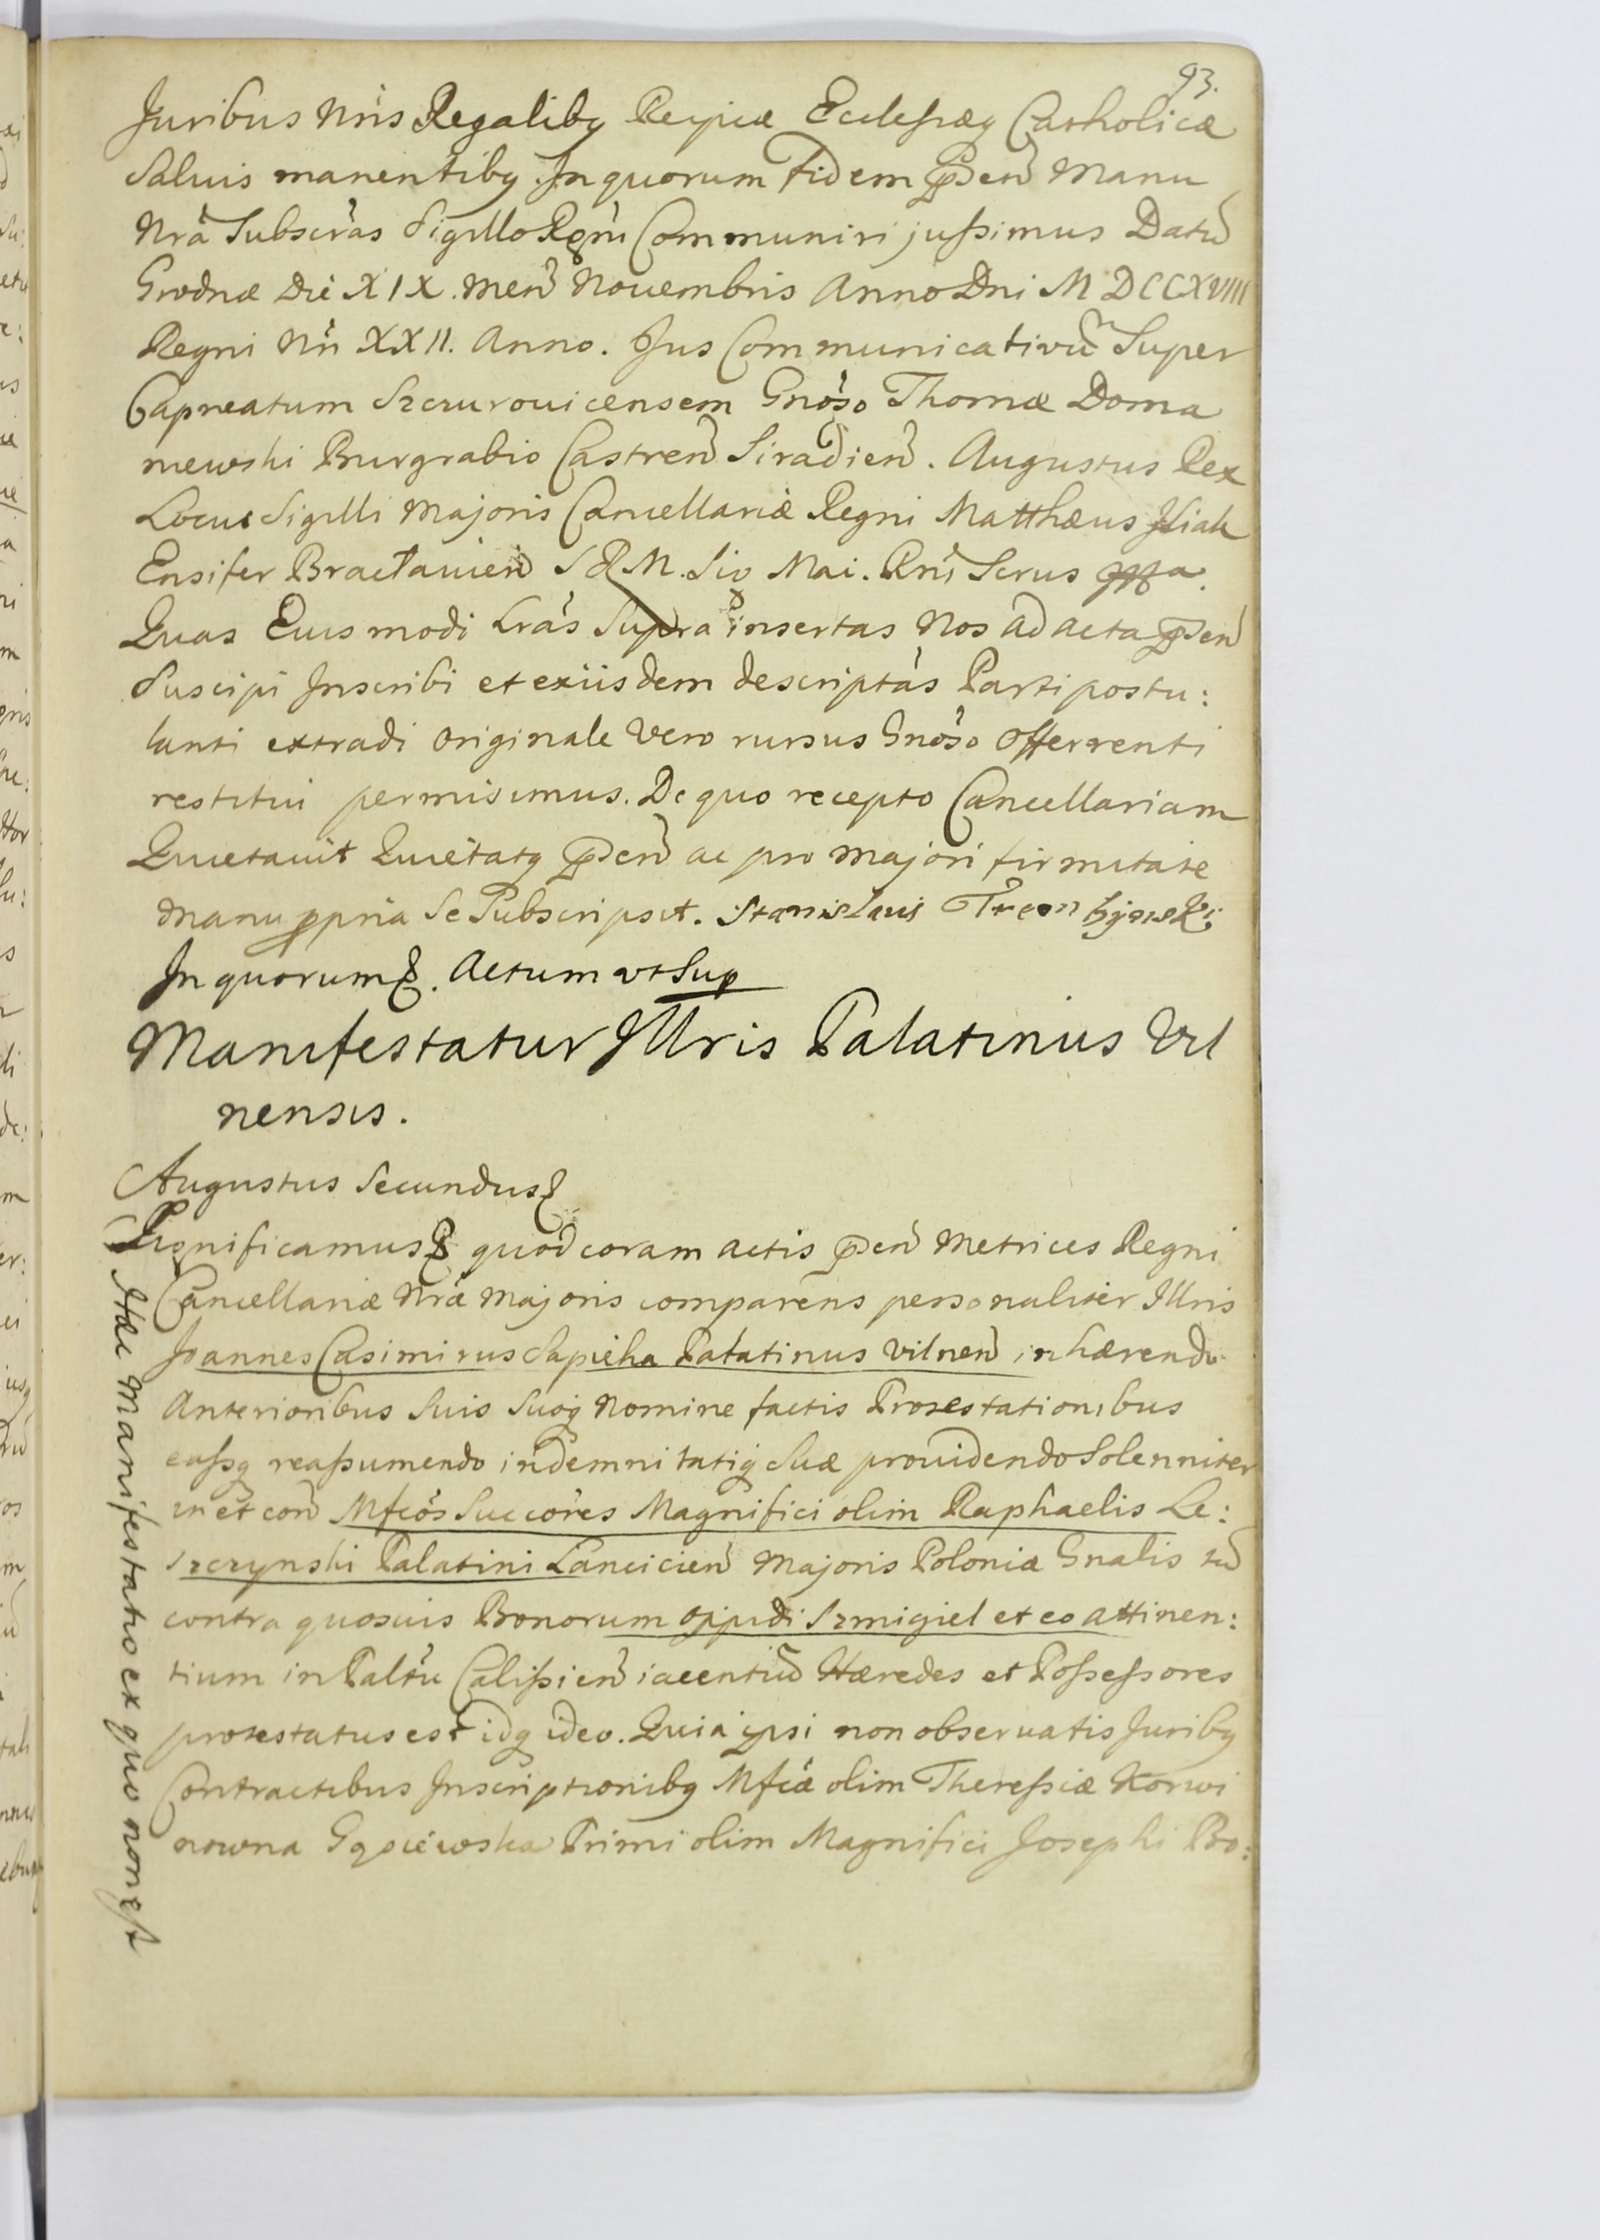 93.
Juribus Nris Regaliby Reipcæ Ecclesiæq Catholicæ
Saluis manentiby In quorum Fidem Pntes Manu
Nrâ Subscrâs Sigillo Regni Communiri jussimus Datũ
Grodnæ Die XIX. Mens Nouembris Anno Dni MDCCXVIII
Regni Nri XXII. Anno. Jus Communicativũ Super
Capneatum Szczurouicensem Gnôso Thomæ Doma
niewski Burgrabio Castreñ Siradieñ. Augustus Rex
Locus Sigilli Majoris Cancellariæ Regni Matthæus
Ensifer Braclauieñ S R M. Mai.
Quas Eius modi Lrâs Supra insertas Nos ad acta pñ
Suscipi Inscribi et exiisdem descriptâs Parti postu:
lanti extradi originale Vero rursus Gnôso Offerrenti
restitui permisimus. De quo recepto Cancellariam
Quietauit Quietatq pñ ac pro majori firmitate
Manu ppria Se Subscripsit. Stanislaus
In quorum &. Actum ut Sup
Manifestatur Illris Palatinus Vil
nensis.
Augustus Secundus &
Significamus & quod coram actis pñ Metrices Regni
Cancellariæ Nræ Majoris comparens personaliter Illris
Joannes Casimirus Sapieha Palatinus Vilneñ inhærendo
Anterioribus Suis Suoq Nomine factis Protestationibus
easq reassumendo indemnitatiq Suæ prouidendo Solenniter
in et coñ Mfcôs Succôres Magnifici olim Raphaelis Le:
szczynski Palatini Lancicieñ Majoris Poloniæ Gnalis tũ
contra quosuis Bonorum oppidi Szmigiel et eo attinen:
tium in Palñtu Calissieñ iacentiũ Hæredes et Possessores
protestatus est idq ideo. Quia ipsi non obseruatis Juriby
Contractibus Inscriptioniby Mfcæ olim Theressiæ Korwi
nowna Gąsiewska Primi olim Magnifici Josephi Bo:
Hæc Manifestatio ex quo non est